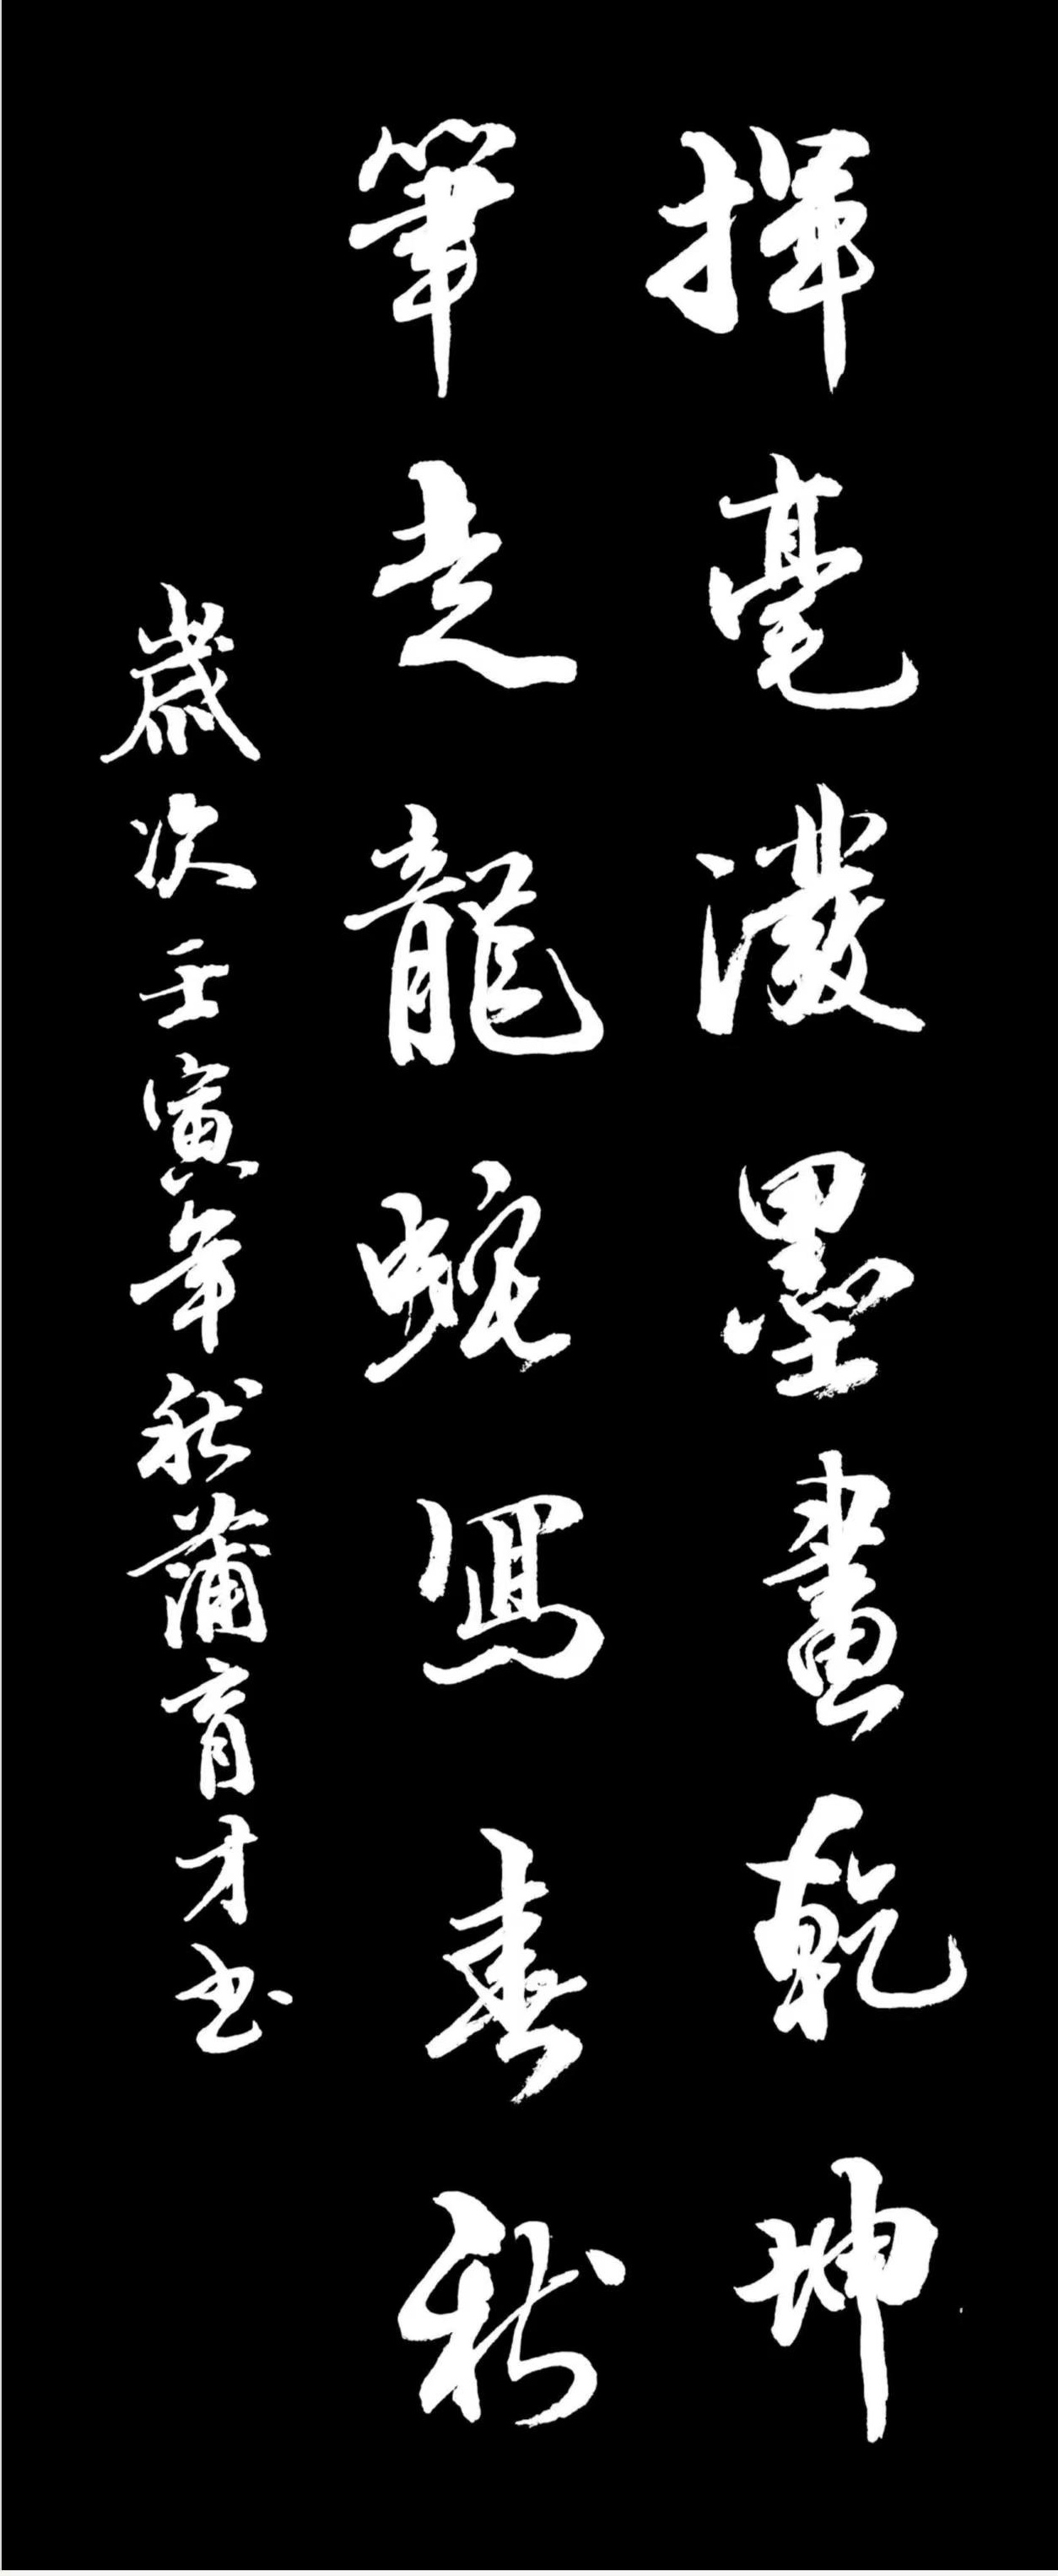 揮毫潑墨畫乾坤
筆走龍蛇寫春秋
歲次壬寅年秋蒲育才书